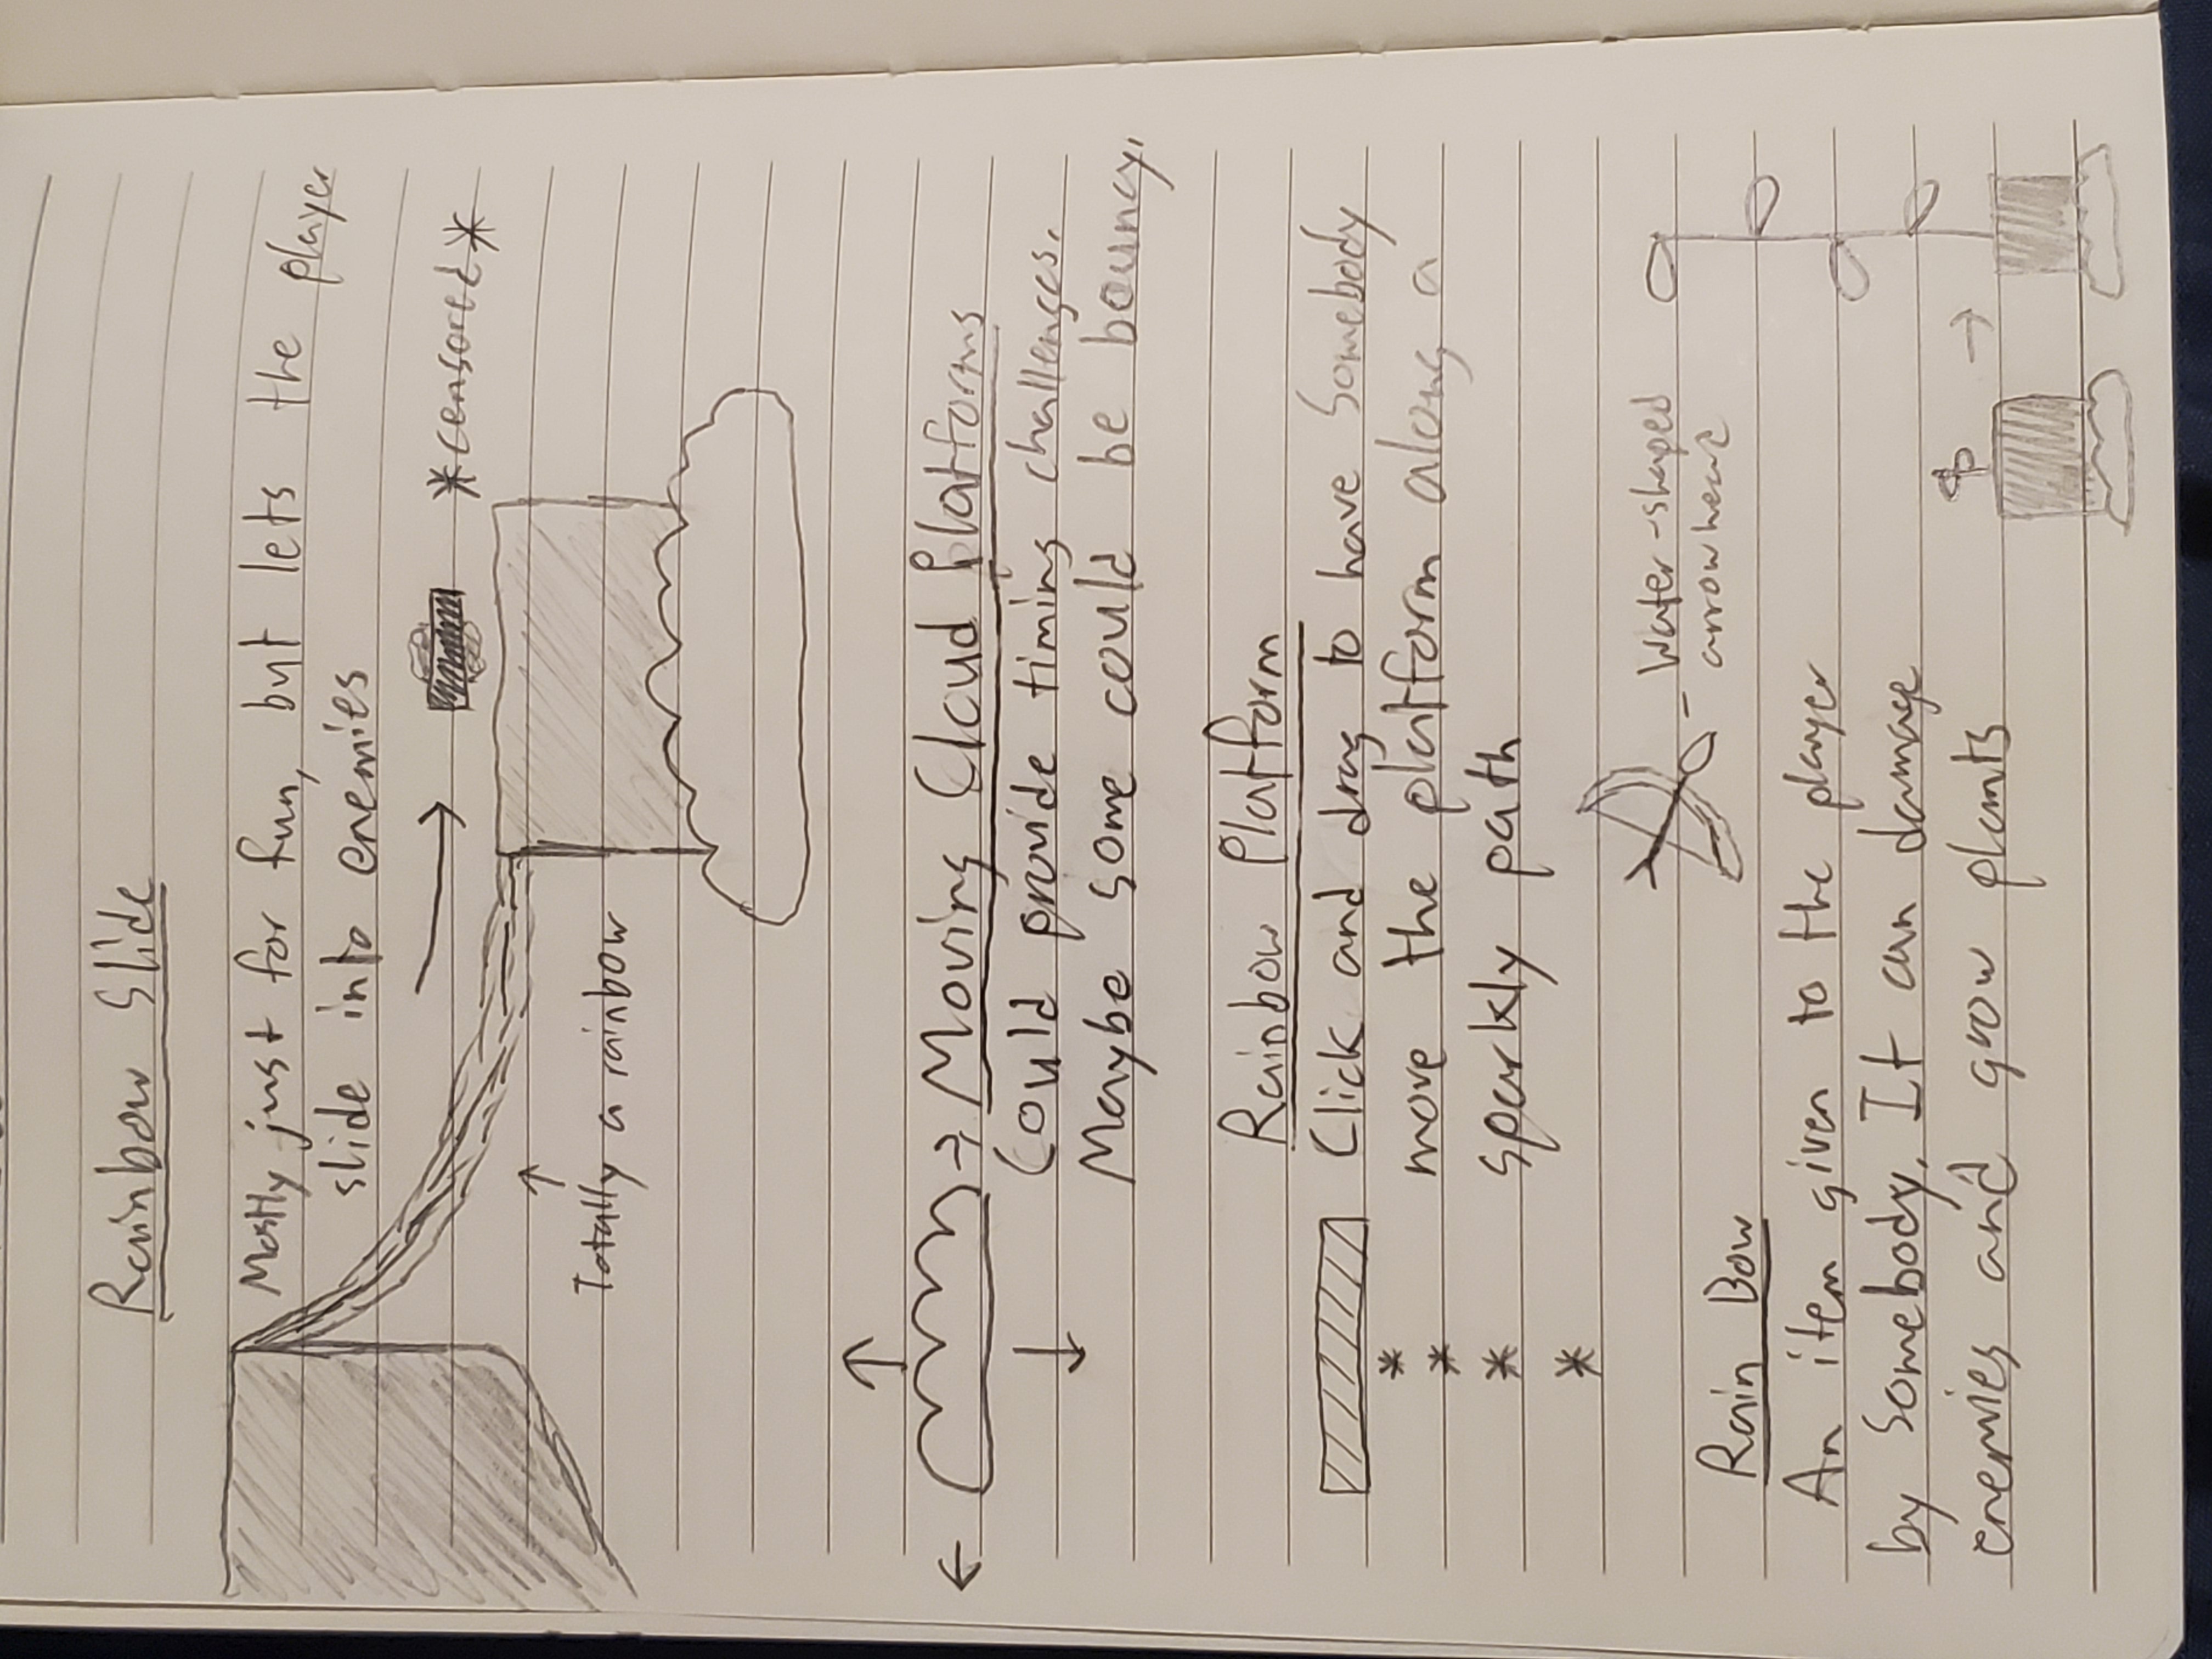 Rainbow Slide
Mostly just for fun, but lets the player
slide into enemies
*censored*
Totally a rainbow
Moving Cloud Platforms
Could provide timing challenges.
Maybe some could be bouncy.
Rainbow Platform
Click and drag to have Somebody
move the platform along a
sparkly path
* * * *
Water-shaped
arrowhead
Rain Bow
An item given to the player
by Somebody. It can damage
enemies and grow plants